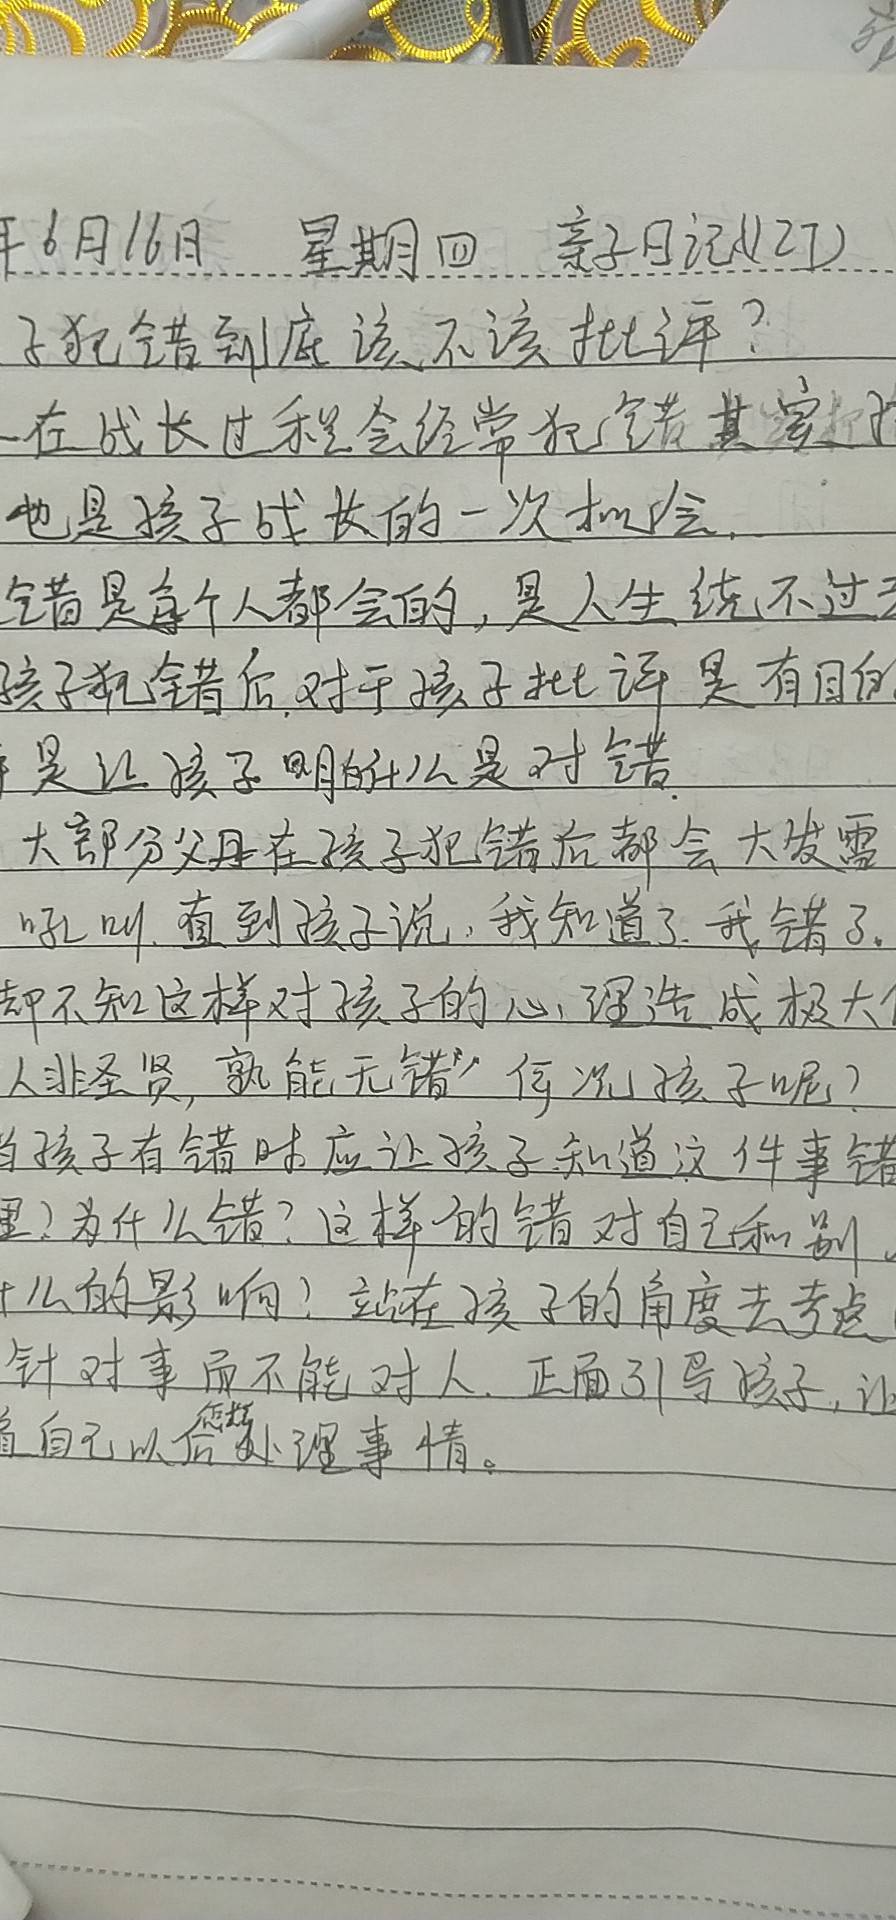 年6月16日 星期四 亲子日记(127)
子犯错到底该不该批评？
在成长过程会经常犯错其实
也是孩子成长的一次机会.
错是每个人都会的,是人生绕不过
孩子犯错后.对于孩子批评是有目的
是让孩子明的什么是对错.
大部分父母在孩子犯错后都会大发雷
吼叫.直到孩子说,我知道了.我错了.
却不知这样对孩子的心理造成极大
人非圣贤,孰能无错” 何况孩子呢？
当孩子有错时应让孩子知道这件事错
里？为什么错？这样的错对自己和别
什么的影响？站在孩子的角度去考虑
针对事而不能对人.正面引导孩子,让
自己以后怎样处理事情。